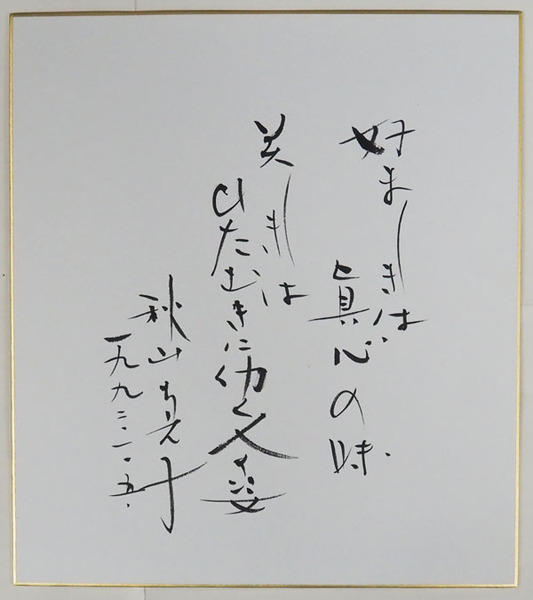 好ましきは
真心の味
美しきは
ひたむきに仂く人姿
秋山ちえ子
一九九二・一・五・